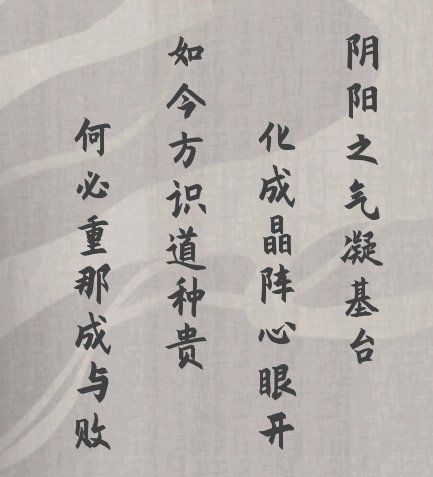 阴阳之气凝基台
化成晶阵心眼开
如今方识道种贵
何必重那成与败